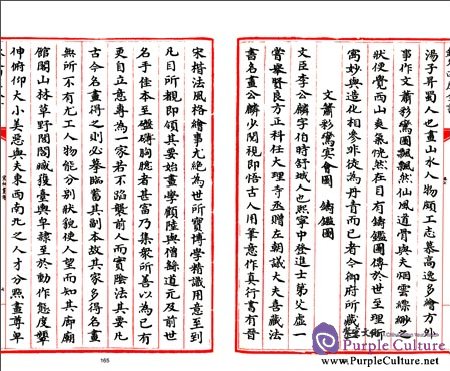 湯子昇蜀人也畫山水人物頗工志慕高逸多繪方外
事作文蕭彩鸞圖飄飄然仙風道骨與夫烟雲縹緲之
狀使覽西山爽氣恍然在目有鑄鑑圖傳於世至理所
寓妙與造化相參非徒為丹青而已者今御府所藏
文蕭彩鸞寘會圖 鑄鑑圖
文臣李公麟字伯時舒城人也熙寧中登進士第父虛一
嘗舉賢良方正科任大理寺丞贈左朝議大夫喜藏法
書名畫公麟少閱視即悟古人用筆意作真行書有晉
宋楷法風格繪事尤絕為世所寶博學精識用意至到
凡目所覩即領其要始畫學顧陸與僧繇道元及前世
名手佳本至磅礡胸臆者甚富乃集衆所善以為己有
更自立意專為一家若不蹈襲前人而實陰法其要凡
古今名畫得之則必摹臨蓄其副本故其家多得名畫
無所不有尤工人物能分別狀貌使人望而知其廊廟
館閣山林草野閭閻臧獲臺輿皁隸至於動作態度顰
伸俯仰大小美惡與夫東西南北之人才分點畫尊卑
165
Purple Culture
www.PurpleCulture.net